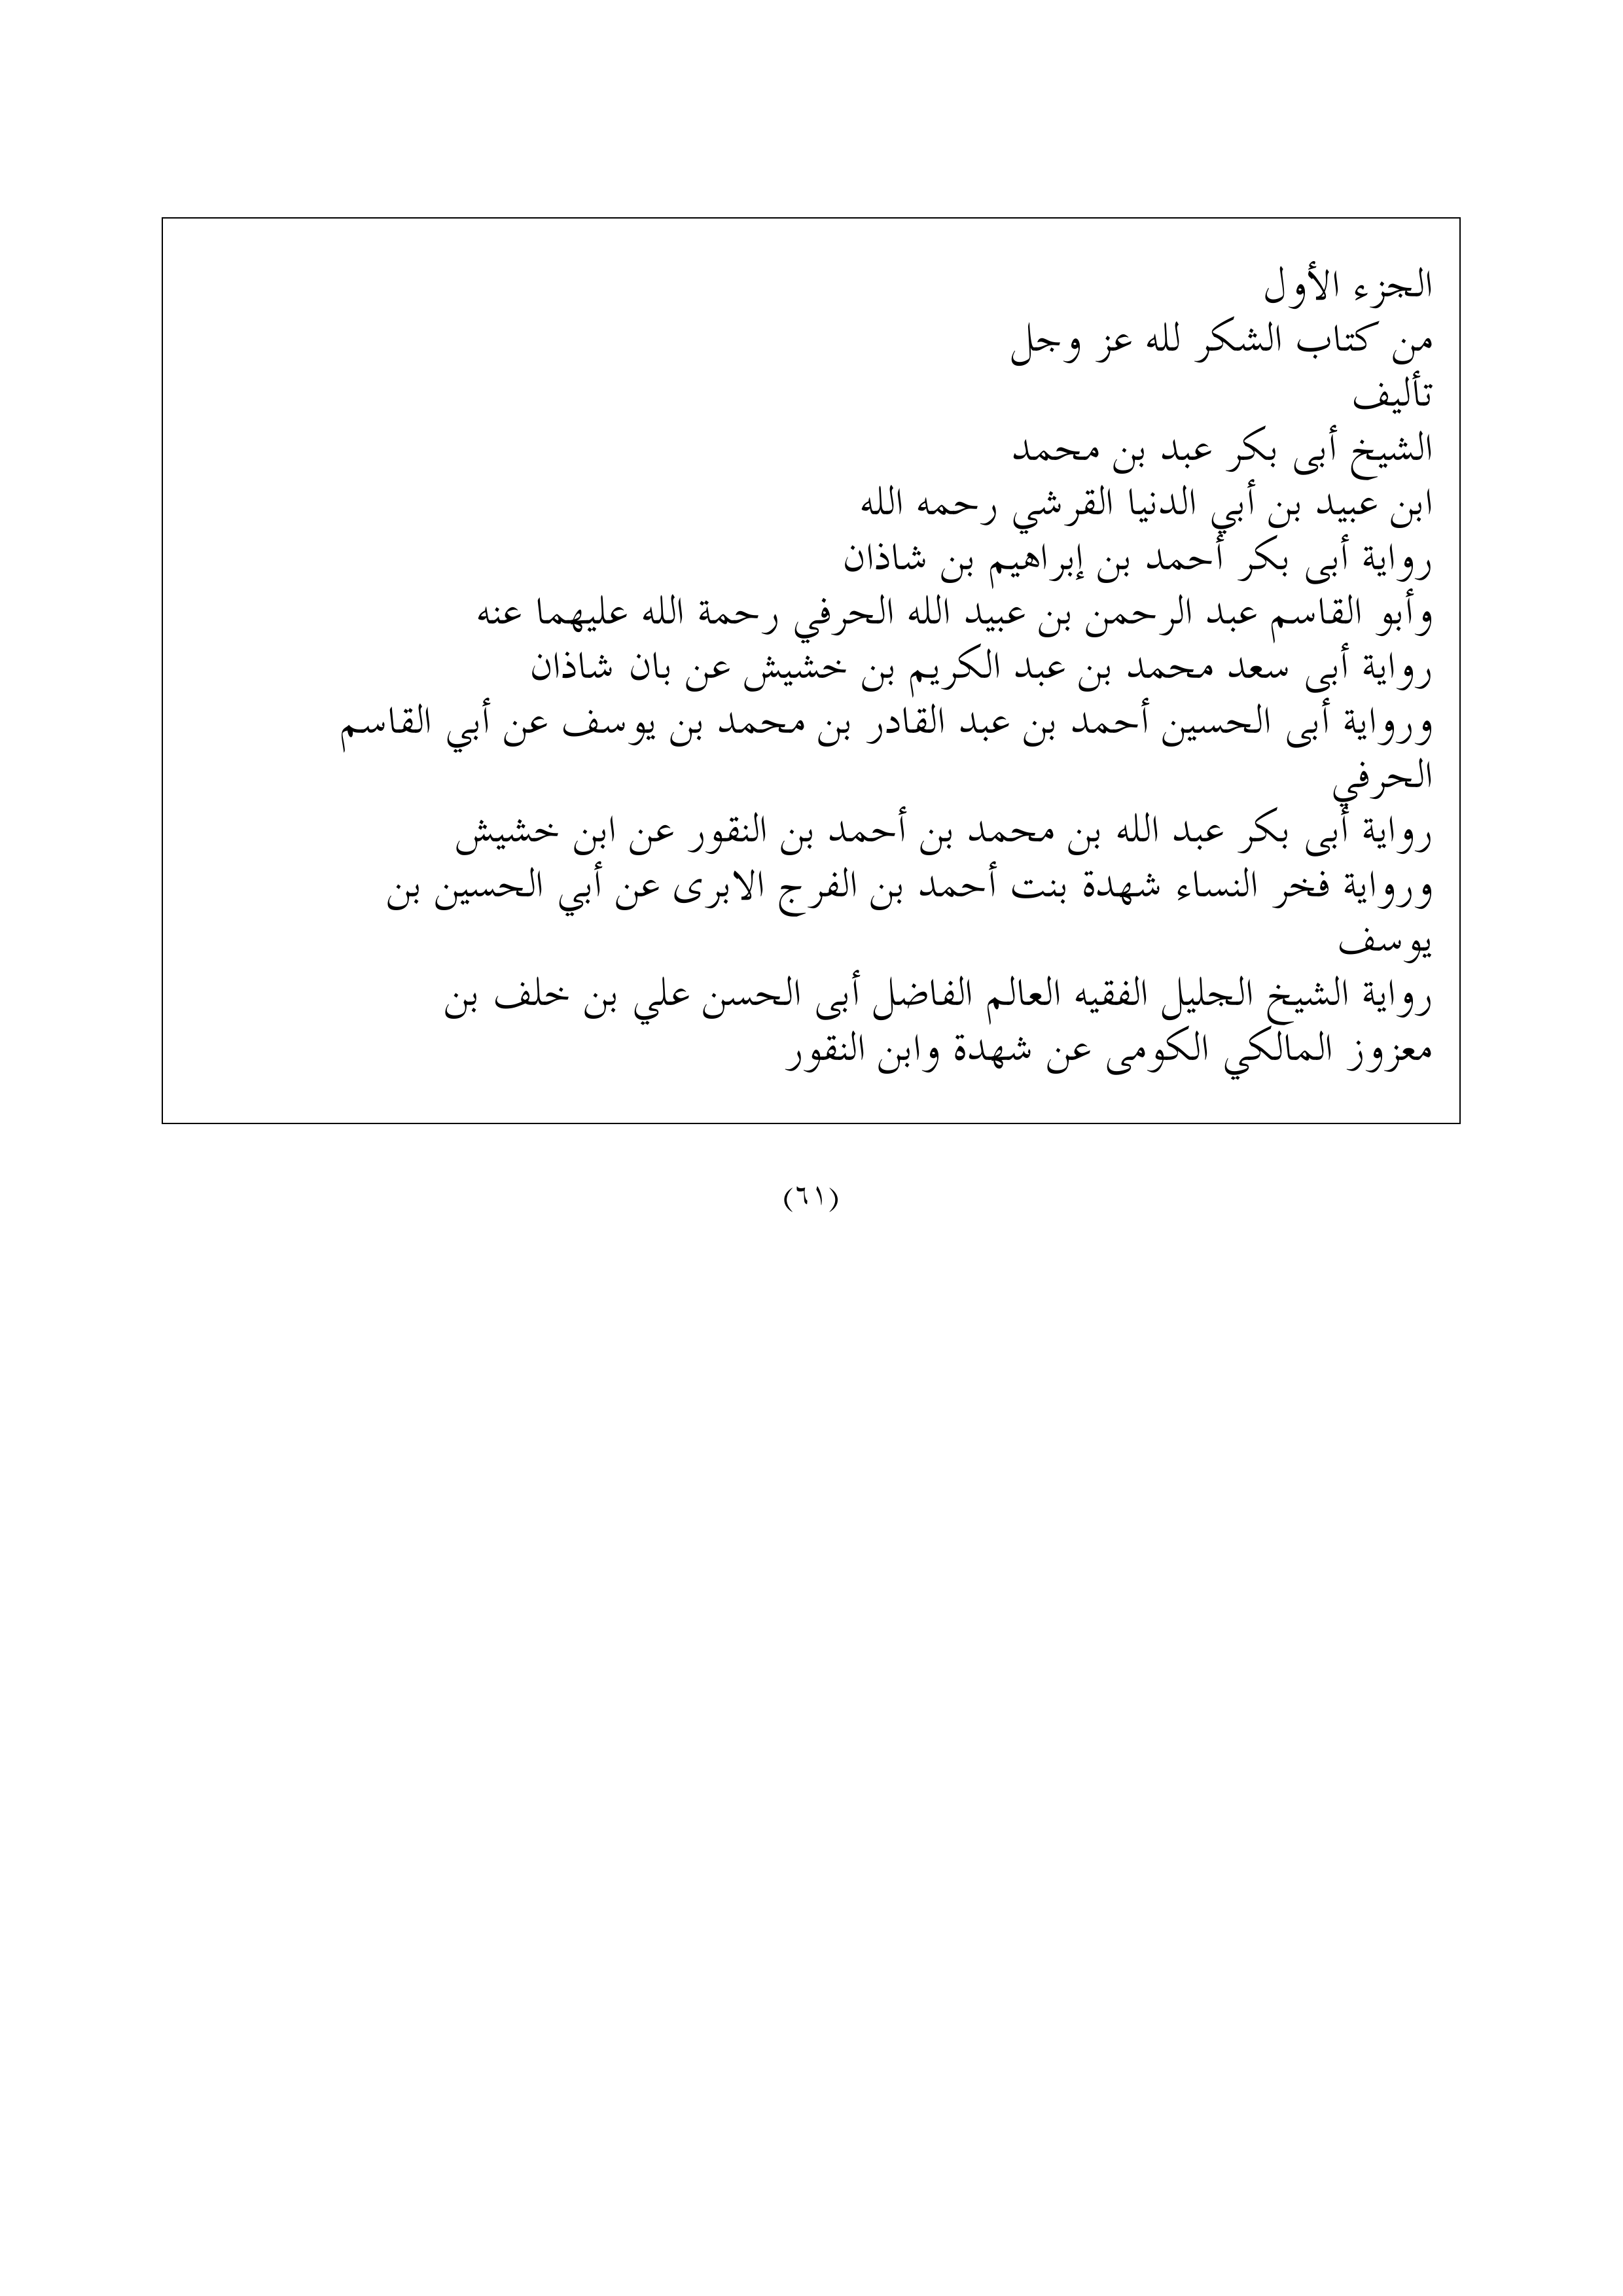 الجزء الأول
من كتاب الشكر لله عز وجل
تأليف
الشيخ أبى بكر عبد بن محمد
ابن عبيد بن أبي الدنيا القرشي رحمه الله
رواية أبى بكر أحمد بن إبراهيم بن شاذان
وأبو القاسم عبد الرحمن بن عبيد الله الحرفي رحمة الله عليهما عنه
رواية أبى سعد محمد بن عبد الكريم بن خشيش عن بان شاذان
ورواية أبى الحسين أحمد بن عبد القادر بن محمد بن يوسف عن أبي القاسم
الحرفي
رواية أبى بكر عبد الله بن محمد بن أحمد بن النقور عن ابن خشيش
ورواية فخر النساء شهدة بنت أحمد بن الفرج الابرى عن أبي الحسين بن
يوسف
رواية الشيخ الجليل الفقيه العالم الفاضل أبى الحسن علي بن خلف بن
معزوز المالكي الكومى عن شهدة وابن النقور
(٦١)